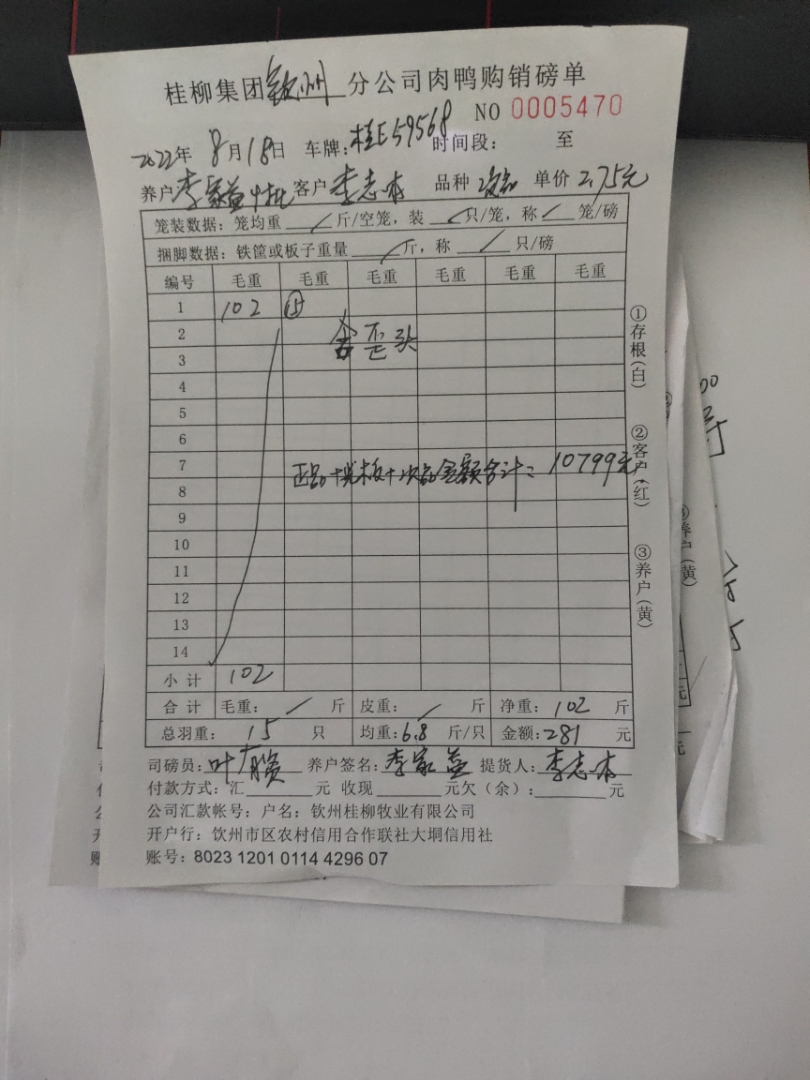 桂柳集团钦州分公司肉鸭购销磅单
NO 0005470
2022年 8月18日 车牌:桂E59568 时间段: 至
养户李家益 客户李志本 品种 次品 单价 2.75元
笼装数据:笼均重 / 斤/空笼,装 / 只/笼,称 / 笼/磅
捆脚数据:铁筐或板子重量 / 斤,称 / 只/磅
编号 毛重 毛重 毛重 毛重 毛重 毛重
1 102 ⑮
2 含歪头
3
4
5
6
7 正品+光板+次品金额合计=10799元
8
9
10
11
12
13
14
小计 102
合计 毛重: / 斤 皮重: / 斤 净重:102 斤
总羽重: 15 只 均重:6.8 斤/只 金额:281 元
司磅员:叶 养户签名:李家益 提货人:李志本
付款方式:汇 元 收现 元欠(余): 元
公司汇款帐号:户名:钦州桂柳牧业有限公司
开户行:饮州市区农村信用合作联社大垌信用社
账号:8023 1201 0114 4296 07
①存根(白)
②客户(红)
③养户(黄)
养户(黄)
元